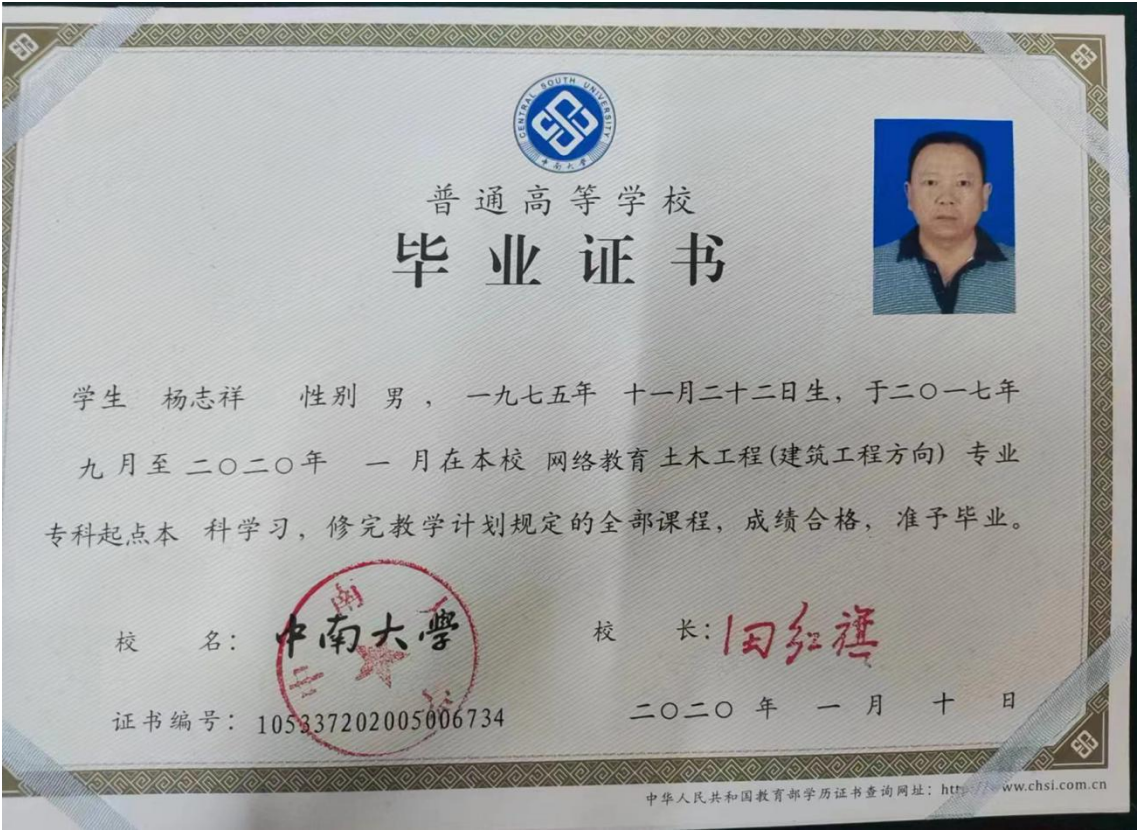 CENTRAL SOUTH UNIVERSITY
中南大学
普通高等学校
毕业证书
学生 杨志祥 性别 男 ，一九七五年 十一月二十二日生，于二〇一七年
九月至二〇二〇年 一 月在本校 网络教育 土木工程(建筑工程方向) 专业
专科起点本 科学习，修完教学计划规定的全部课程，成绩合格，准予毕业。
校 名： 中南大學
校 长： 田红旗
证书编号： 105337202005006734
二〇二〇 年 一 月 十 日
中华人民共和国教育部学历证书查询网址：http://www.chsi.com.cn